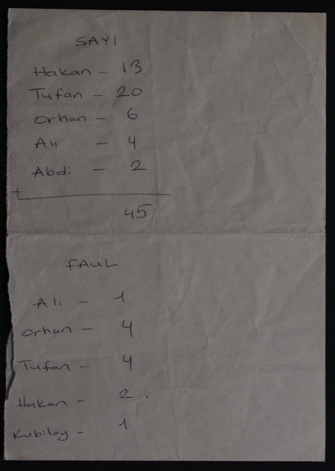 SAYI
Hakan - 13
Tufan - 20
Orhan - 6
Ali - 4
Abdi - 2
+
45
FAUL
Ali - 1
Orhan - 4
Tufan - 4
Hakan - 2
Kubilay - 1